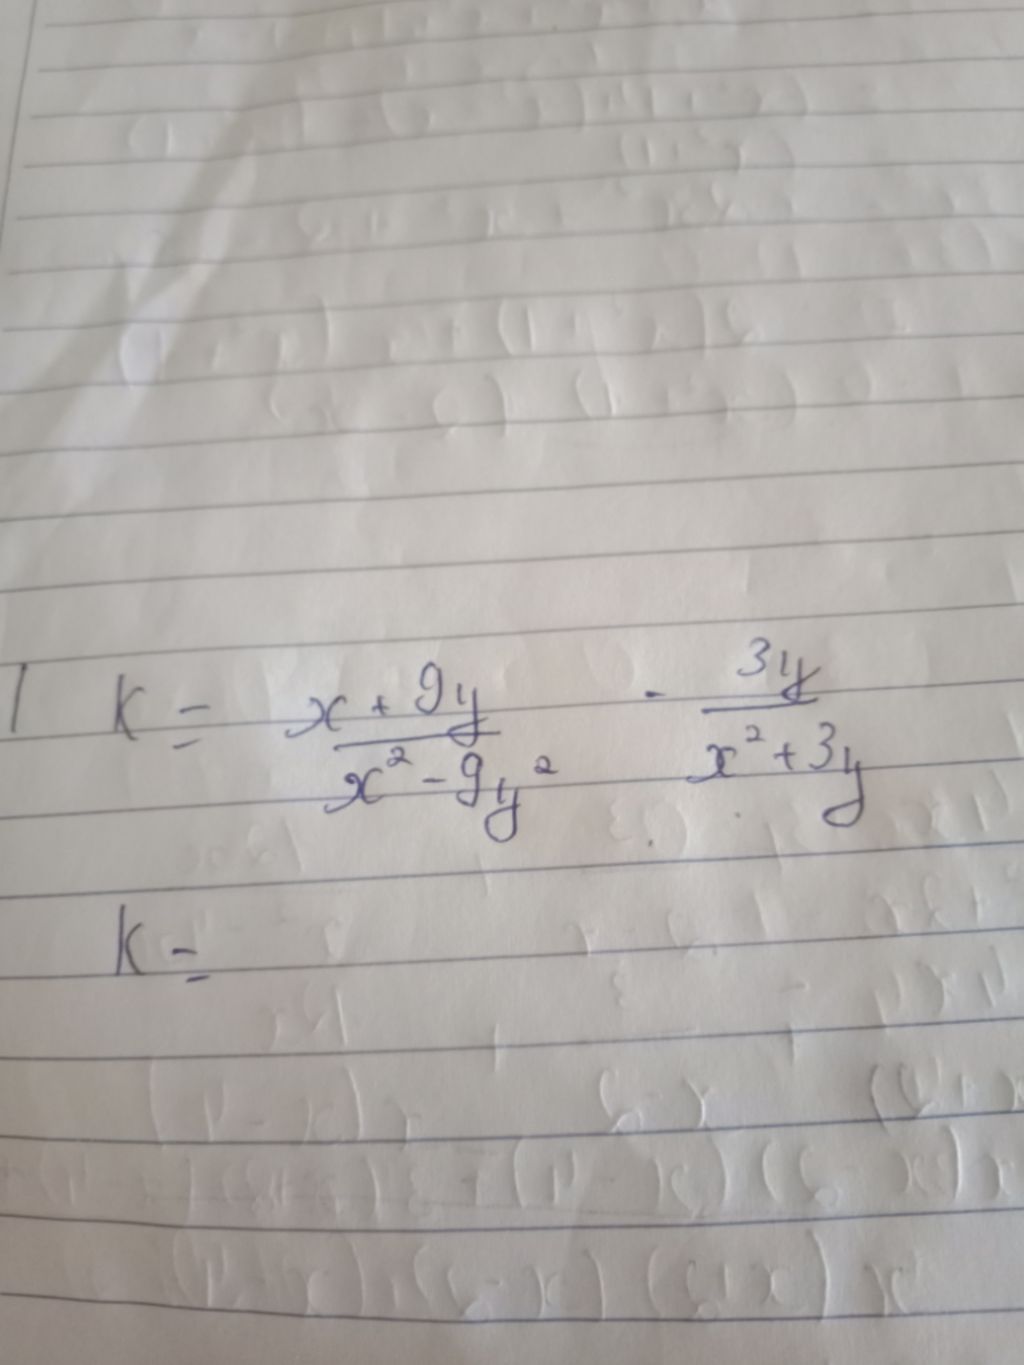 1 K = x + 9y / x² - 9y² - 3y / x² + 3y
K =